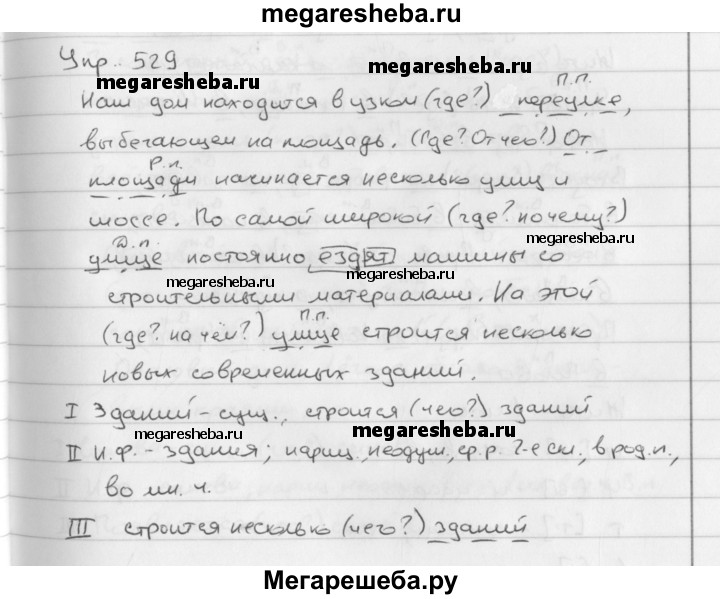 megaresheba.ru
Упр. 529
megaresheba.ru megaresheba.ru
П.п.
Наш дом находится в узком (где?) переулке,
выбегающем на площадь. (Где? От чего?) От
Р.п.
площади начинается несколько улиц и
шоссе. По самой широкой (где? по чему?)
Д.п. megaresheba.ru
улице постоянно ездят машины со
megaresheba.ru megaresheba.ru
строительными материалами. На этой
П.п.
(где? на чём?) улице строится несколько
новых современных зданий.
I Зданий - сущ., строится (чего?) зданий
megaresheba.ru megaresheba.ru
II Н.ф. - здания; нариц., неодуш., ср.р. 2-е скл., в род.п.,
во мн.ч.
III строится несколько (чего?) зданий
Мегарешеба.ру